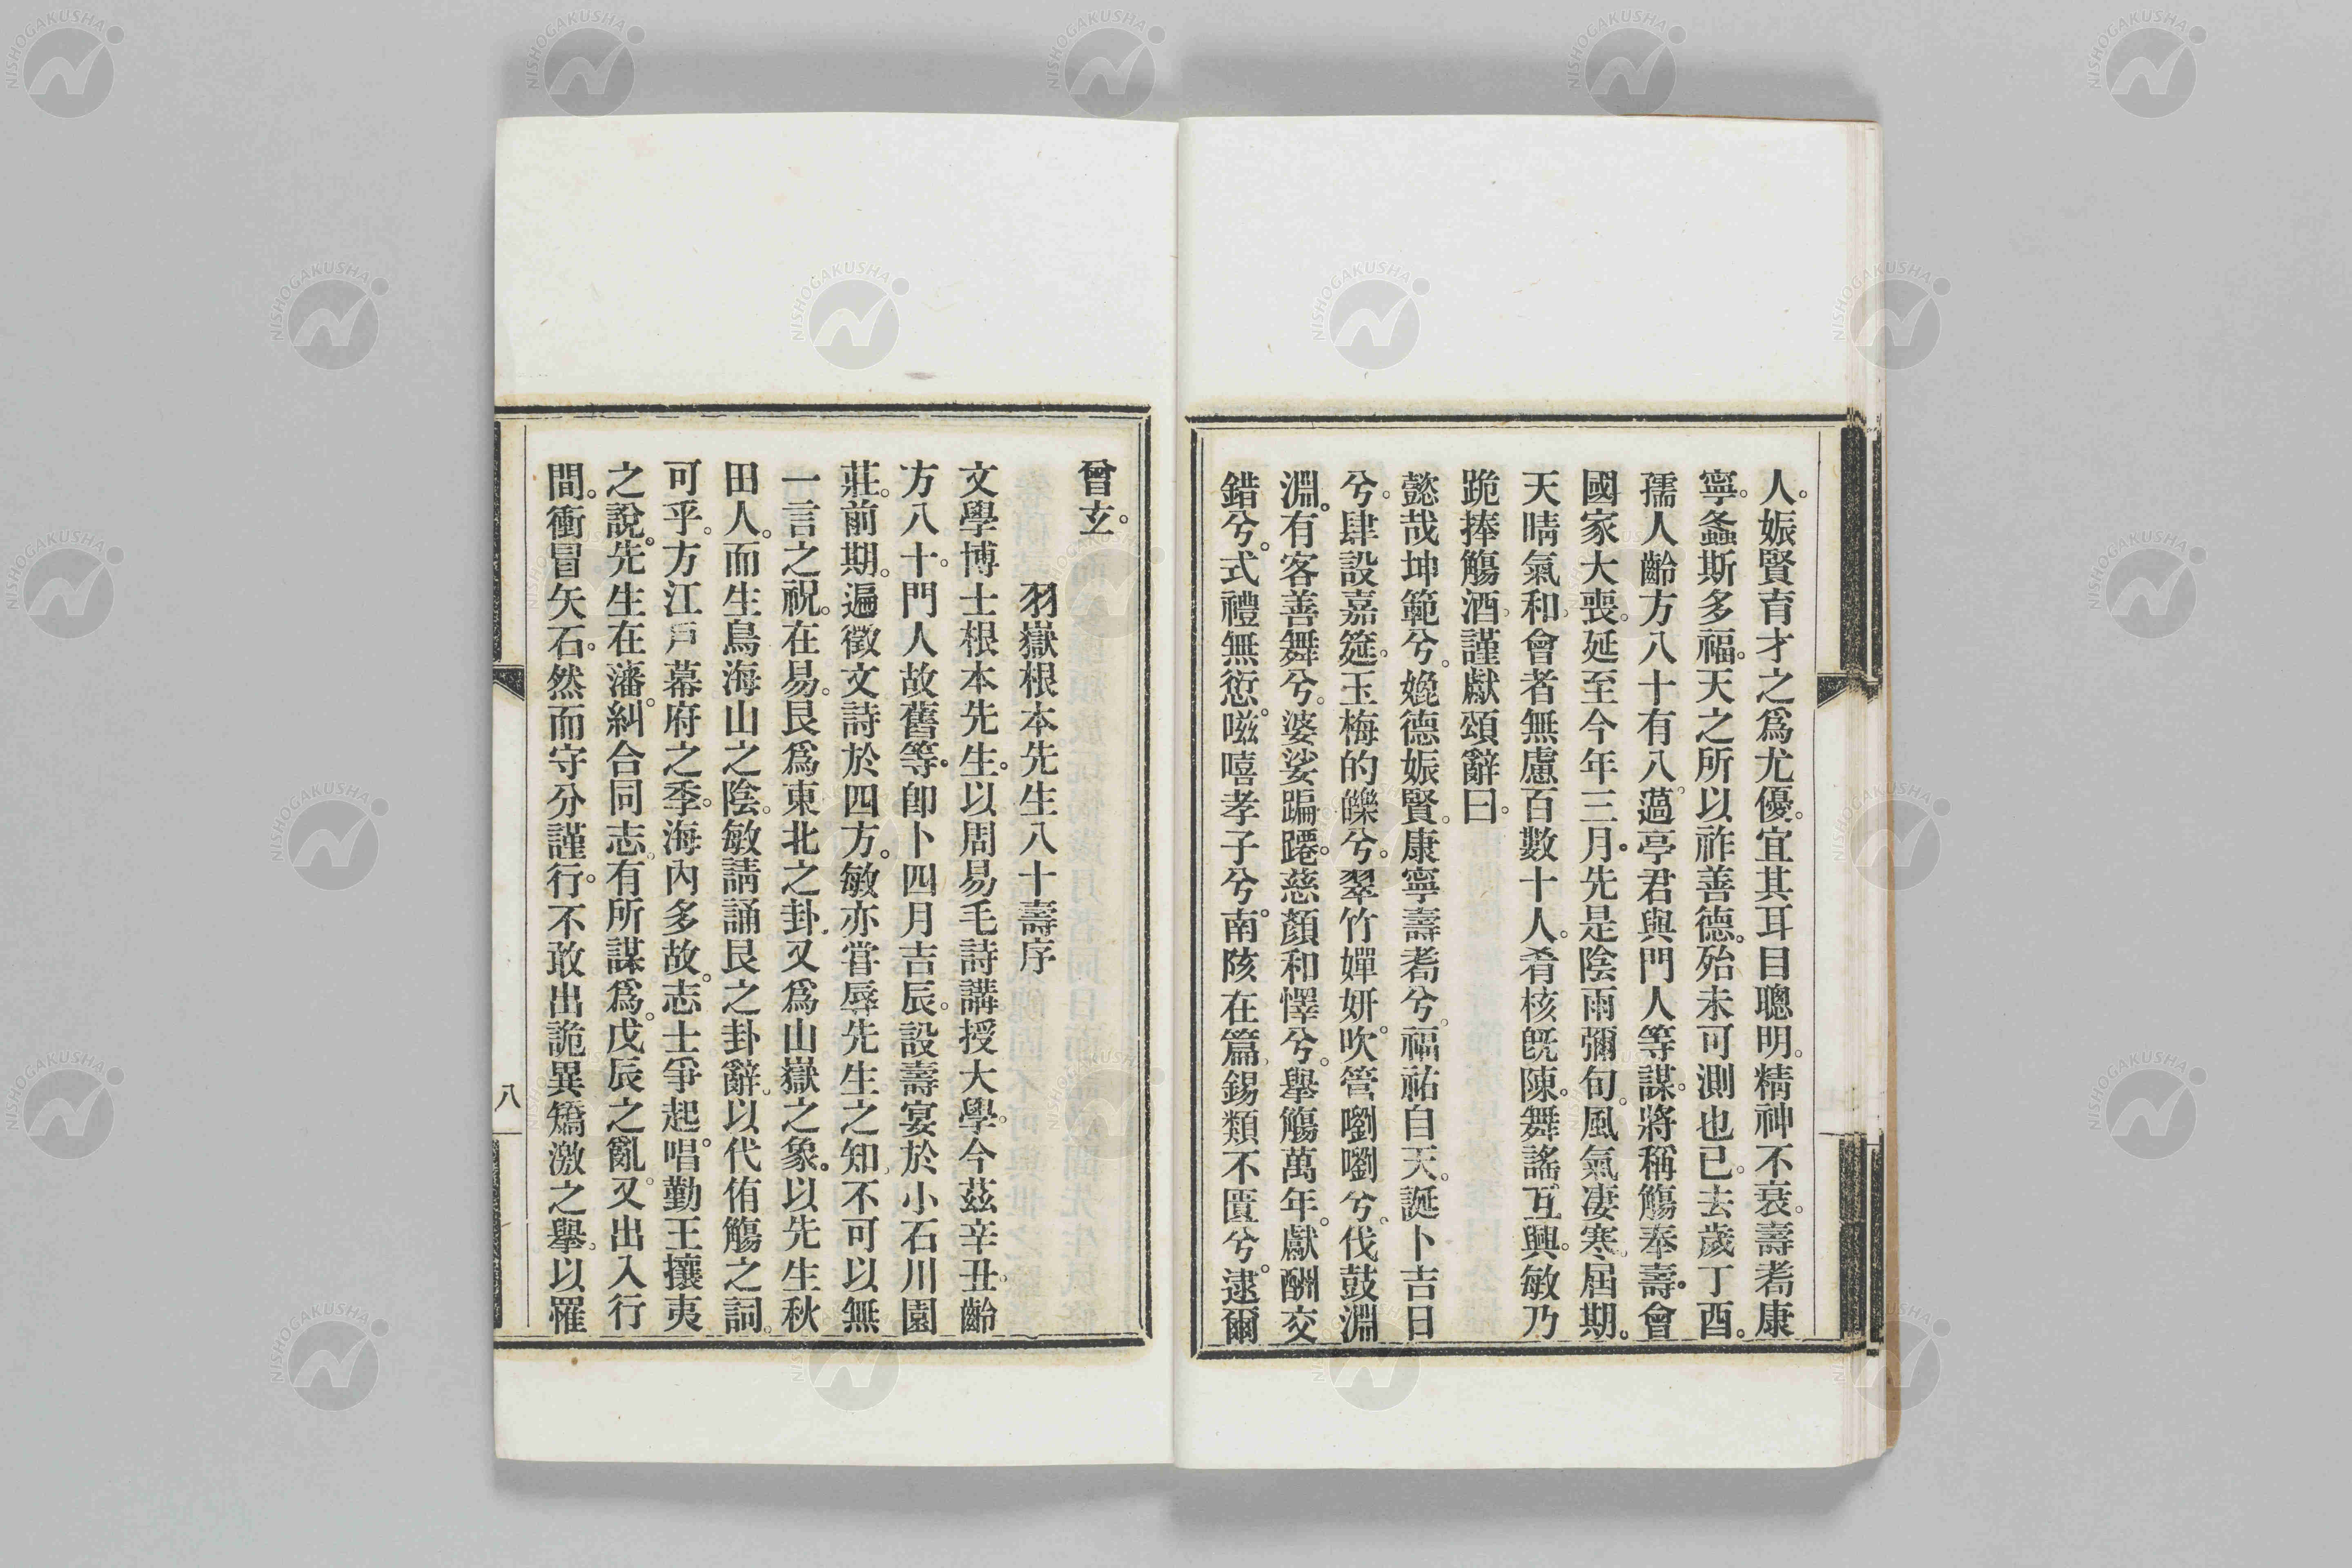 人。娠賢育才之爲尤優。宜其耳目聰明。精神不衰。壽耈康
寧。螽斯多福。天之所以祚善德。殆未可測也已。去歲丁酉。
孺人齡方八十有八。薖亭君與門人等謀。將稱觴奉壽。會
國家大喪。延至今年三月。先是陰雨彌旬。風氣凄寒。屆期。
天晴氣和。會者無慮百數十人。肴核既陳。舞謠互興。敏乃
跪捧觴酒。謹獻頌辭曰。
懿哉坤範兮。娩德娠賢。康寧壽耈兮。福祐自天。誕卜吉日
兮。肆設嘉筵。玉梅的皪兮。翠竹嬋姸。吹管嚠嚠兮。伐鼓淵
淵。有客善舞兮。婆娑蹁躚。慈顏和懌兮。擧觴萬年。獻酬交
錯兮。式禮無愆。嗞嘻孝子兮。南陔在篇。錫類不匱兮。逮爾
曾玄。
羽嶽根本先生八十壽序
文學博士根本先生。以周易毛詩講授大學。今茲辛丑。齡
方八十。門人故舊等。卽卜四月吉辰。設壽宴於小石川園
莊。前期。遍徵文詩於四方。敏亦嘗辱先生之知。不可以無
一言之祝。在易。艮爲東北之卦。又爲山嶽之象。以先生秋
田人。而生鳥海山之陰。敏請誦艮之卦辭。以代侑觴之詞。
可乎。方江戶幕府之季。海內多故。志士爭起。唱勤王攘夷
之說。先生在藩。糾合同志。有所謀爲。戊辰之亂。又出入行
間。衝冒矢石。然而守分謹行。不敢出詭異矯激之擧。以罹
八
NISHOGAKUSHA